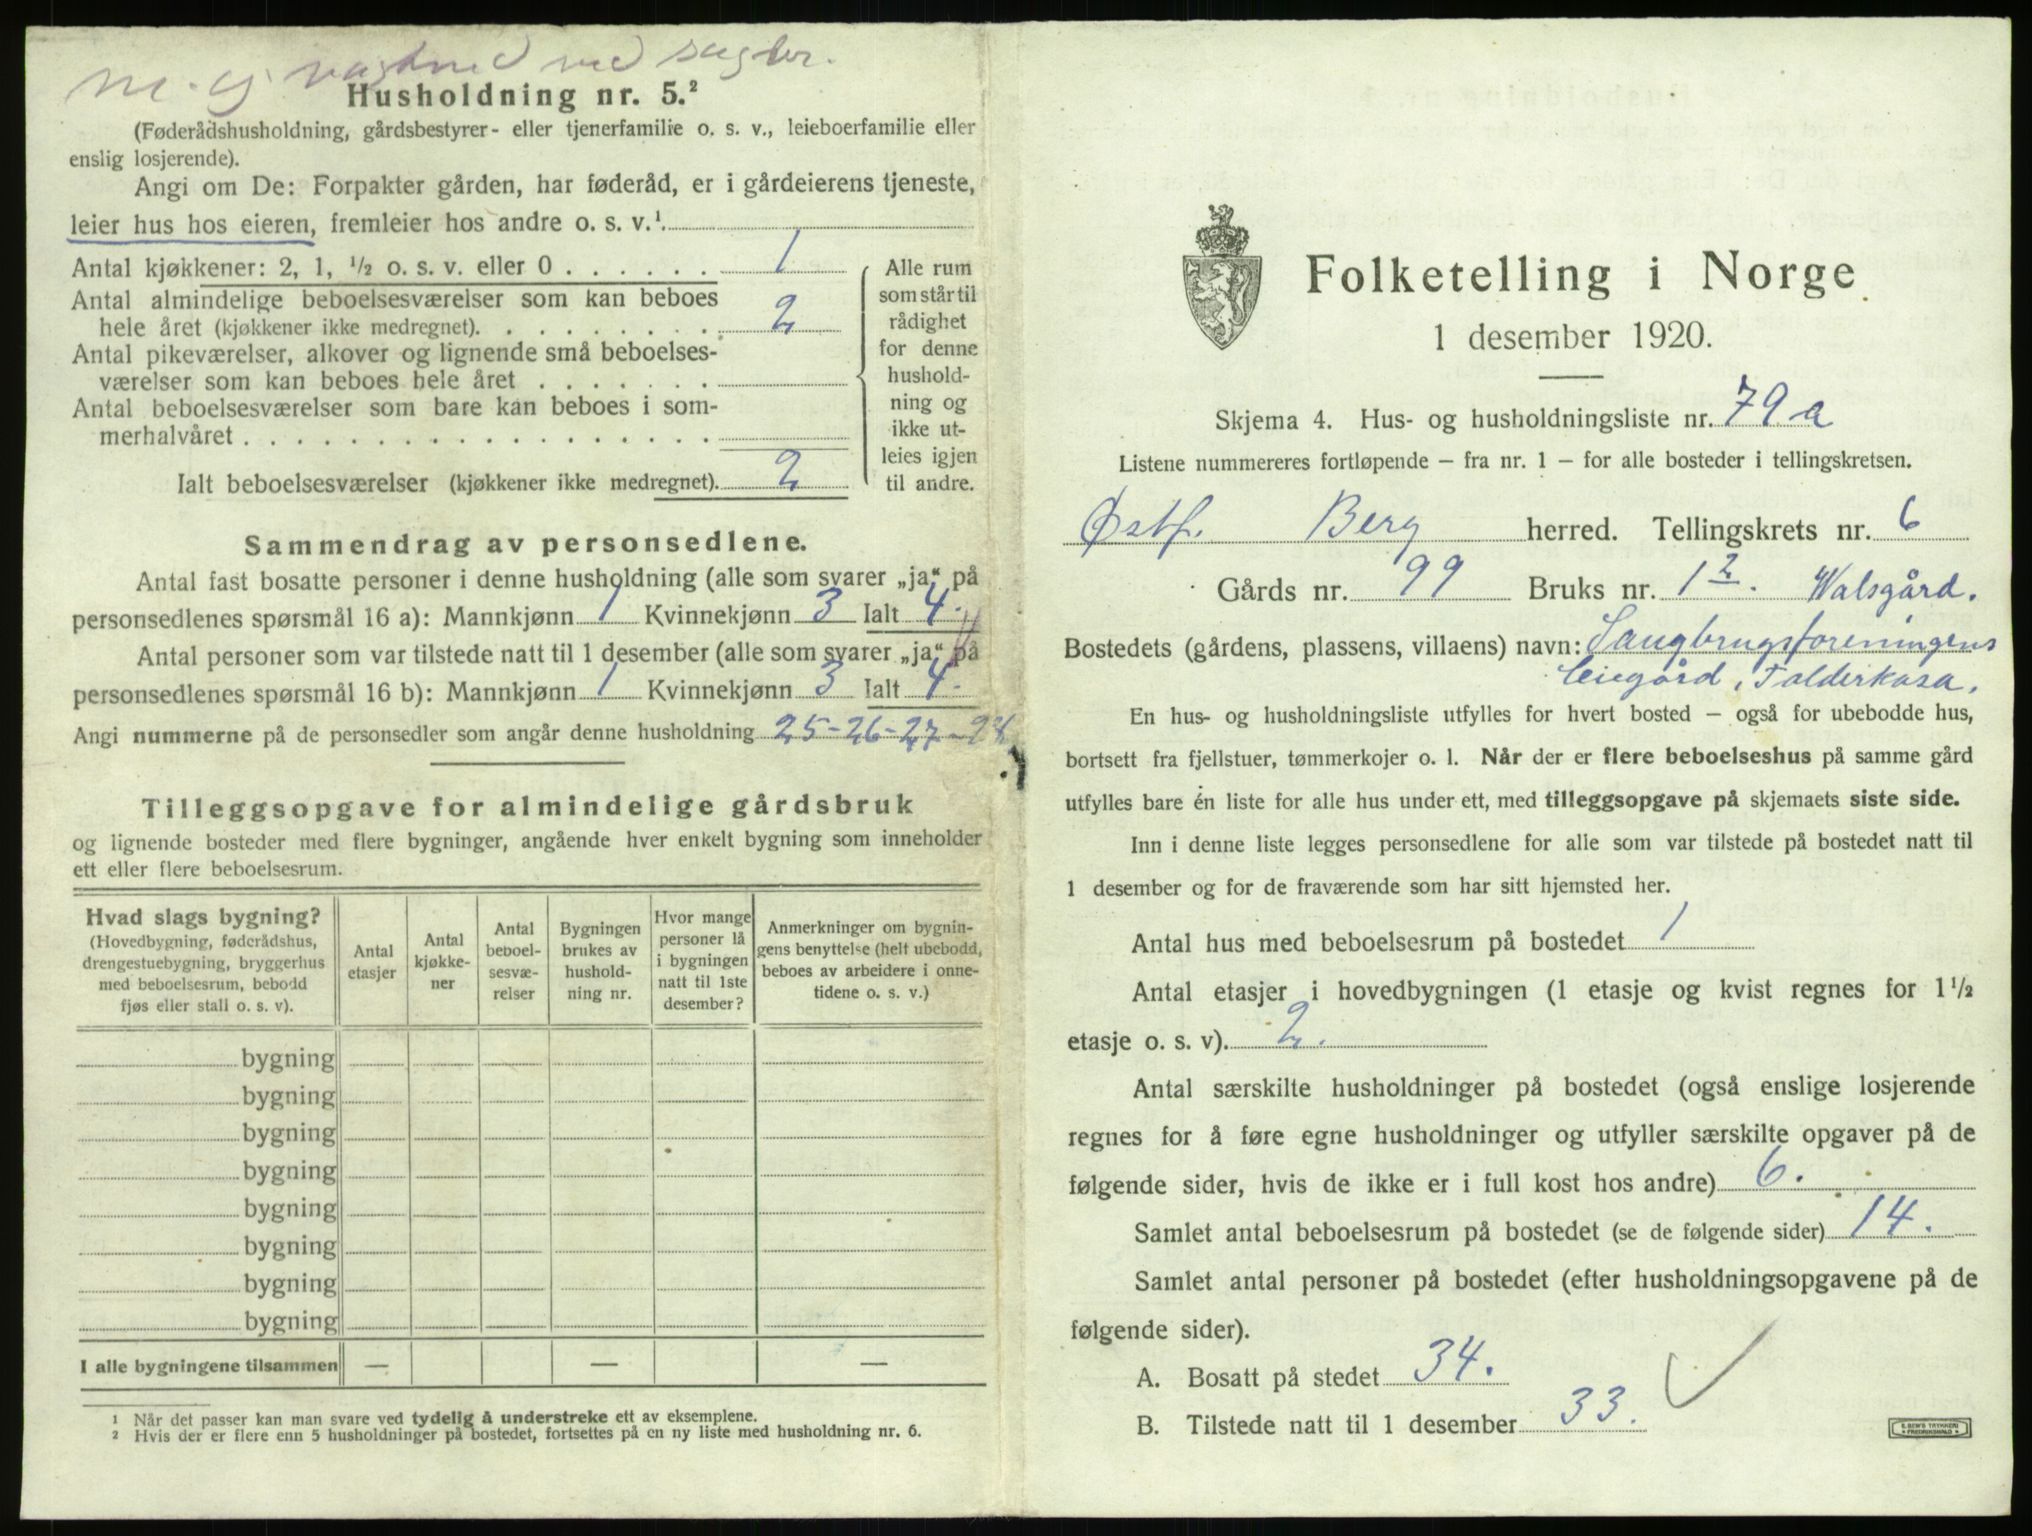 Husholdning nr. 5.²
(Føderådshusholdning, gårdsbestyrer- eller tjenerfamilie o. s. v., leieboerfamilie eller
enslig losjerende).
Angi om De: Forpakter gården, har føderåd, er i gårdeierens tjeneste,
leier hus hos eieren, fremleier hos andre o. s. v.¹
Antal kjøkkener: 2, 1, ½ o. s. v. eller 0 . . . . . . 1
Antal almindelige beboelsesværelser som kan beboes
hele året (kjøkkener ikke medregnet). . . . . . . . . 2
Antal pikeværelser, alkover og lignende små beboelses-
værelser som kan beboes hele året . . . . . . .
Antal beboelsesværelser som bare kan beboes i som-
merhalvåret . . . . . . . . . . . . . . . . . .
Ialt beboelsesværelser (kjøkkener ikke medregnet). 2
Alle rum
som står til
rådighet
for denne
hushold-
ning og
ikke ut-
leies igjen
til andre.
Sammendrag av personsedlene.
Antal fast bosatte personer i denne husholdning (alle som svarer „ja“ på
personsedlenes spørsmål 16 a): Mannkjønn 1 Kvinnekjønn 3 Ialt 4.
Antal personer som var tilstede natt til 1 desember (alle som svarer „ja“ på
personsedlenes spørsmål 16 b): Mannkjønn 1 Kvinnekjønn 3 Ialt 4.
Angi nummerne på de personsedler som angår denne husholdning 25-26-27-28
Tilleggsopgave for almindelige gårdsbruk
og lignende bosteder med flere bygninger, angående hver enkelt bygning som inneholder
ett eller flere beboelsesrum.
Hvad slags bygning?
(Hovedbygning, føderådshus,
drengestuebygning, bryggerhus
med beboelsesrum, bebodd
fjøs eller stall o. s. v).
Antal
etasjer
Antal
kjøkke-
ner
Antal
beboel-
sesvæ-
relser
Bygningen
brukes av
hushold-
ning nr.
Hvor mange
personer lå
i bygningen
natt til 1ste
desember?
Anmerkninger om bygnin-
gens benyttelse (helt ubebodd,
beboes av arbeidere i onne-
tidene o. s. v.)
bygning
bygning
bygning
bygning
bygning
bygning
bygning
bygning
I alle bygningene tilsammen — — —
¹ Når det passer kan man svare ved tydelig å understreke ett av eksemplene.
² Hvis der er flere enn 5 husholdninger på bostedet, fortsettes på en ny liste med husholdning nr. 6.
Folketelling i Norge
1 desember 1920.
Skjema 4. Hus- og husholdningsliste nr. 79 a
Listene nummereres fortløpende — fra nr. 1 — for alle bosteder i tellingskretsen.
Østf. Berg herred. Tellingskrets nr. 6
Gårds nr. 99 Bruks nr. 1 2. Walsgård.
Bostedets (gårdens, plassens, villaens) navn: Saugbrugsforeningens
leiegård, Folderkasa.
En hus- og husholdningsliste utfylles for hvert bosted — også for ubebodde hus,
bortsett fra fjellstuer, tømmerkojer o. l. Når der er flere beboelseshus på samme gård
utfylles bare én liste for alle hus under ett, med tilleggsopgave på skjemaets siste side.
Inn i denne liste legges personsedlene for alle som var tilstede på bostedet natt til
1 desember og for de fraværende som har sitt hjemsted her.
Antal hus med beboelsesrum på bostedet 1
Antal etasjer i hovedbygningen (1 etasje og kvist regnes for 1½
etasje o. s. v). 2.
Antal særskilte husholdninger på bostedet (også enslige losjerende
regnes for å føre egne husholdninger og utfyller særskilte opgaver på de
følgende sider, hvis de ikke er i full kost hos andre) 6.
Samlet antal beboelsesrum på bostedet (se de følgende sider) 14.
Samlet antal personer på bostedet (efter husholdningsopgavene på de
følgende sider).
A. Bosatt på stedet 34.
B. Tilstede natt til 1 desember 33.
E. SEM'S TRYKKERI
FREDRIKSHALD